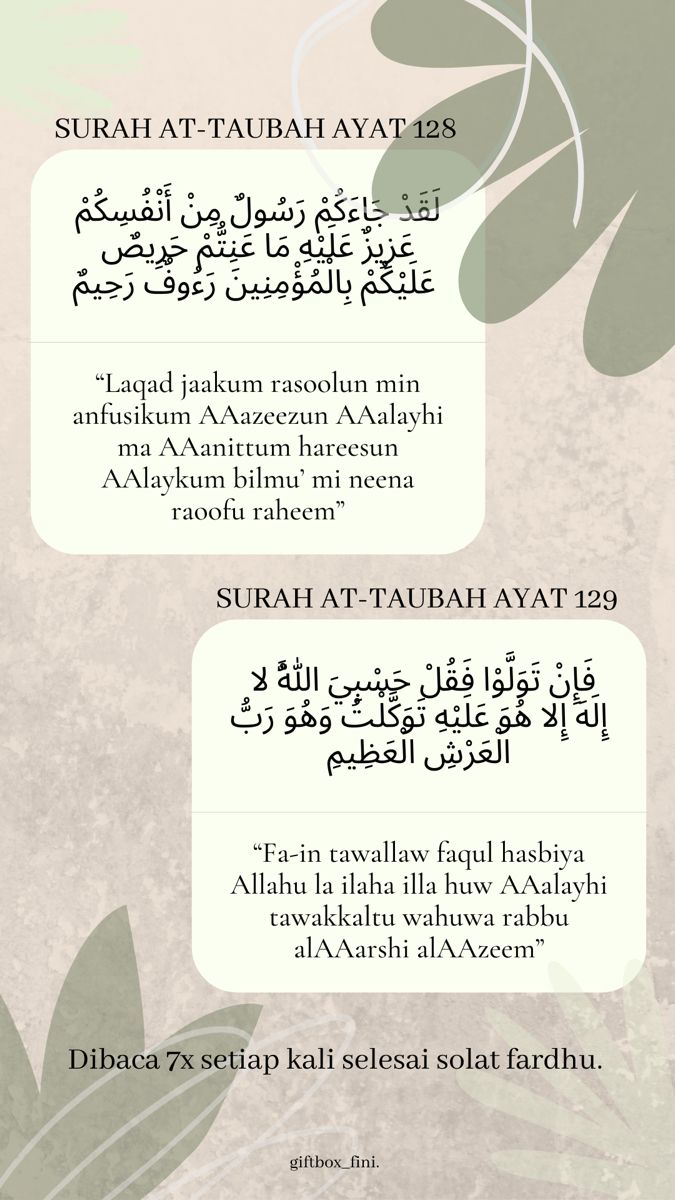 SURAH AT-TAUBAH AYAT 128
لَقَدْ جَاءَكُمْ رَسُولٌ مِنْ أَنْفُسِكُمْ
عَزِيزٌ عَلَيْهِ مَا عَنِتُّمْ حَرِيصٌ
عَلَيْكُمْ بِالْمُؤْمِنِينَ رَءُوفٌ رَحِيمٌ
“Laqad jaakum rasoolun min
anfusikum AAazeezun AAalayhi
ma AAanittum hareesun
AAlaykum bilmu’ mi neena
raoofu raheem”
SURAH AT-TAUBAH AYAT 129
فَإِنْ تَوَلَّوْا فَقُلْ حَسْبِيَ اللَّهُ لا
إِلَهَ إِلا هُوَ عَلَيْهِ تَوَكَّلْتُ وَهُوَ رَبُّ
الْعَرْشِ الْعَظِيمِ
“Fa-in tawallaw faqul hasbiya
Allahu la ilaha illa huw AAalayhi
tawakkaltu wahuwa rabbu
alAAarshi alAAzeem”
Dibaca 7x setiap kali selesai solat fardhu.
giftbox_fini.